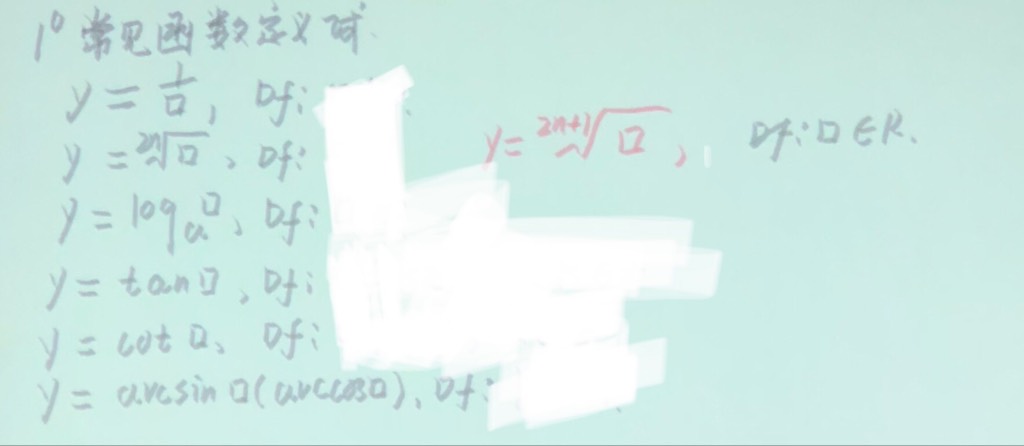 1° 常见函数定义域
y = 1/□, Df:
y = ²ⁿ√□, Df: y = ²ⁿ⁺¹√□, Df: □ ∈ R.
y = logₐ□, Df:
y = tan□, Df:
y = cot□, Df:
y = arcsin□(arccos□), Df: